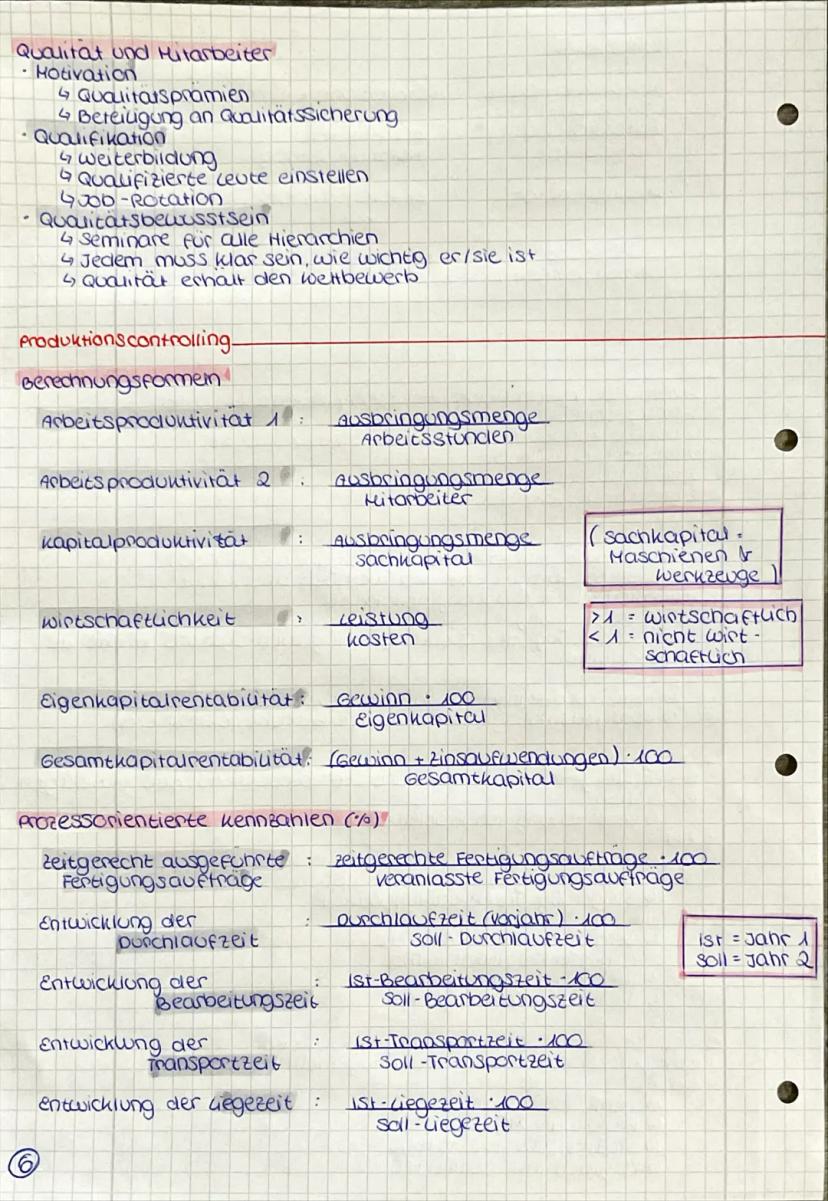 Qualität und Mitarbeiter
· Motivation
↳ Qualitätsprämien
↳ Beteiligung an Qualitätssicherung
· Qualifikation
↳ Weiterbildung
↳ Qualifizierte Leute einstellen
↳ Job-Rotation
· Qualitätsbewusstsein
↳ Seminare für alle Hierarchien
↳ Jedem muss klar sein, wie wichtig er/sie ist
↳ Qualität erhält den Wettbewerb
Produktionscontrolling
Berechnungsformeln
Arbeitsproduktivität 1 : Ausbringungsmenge
Arbeitsstunden
Arbeitsproduktivität 2 : Ausbringungsmenge
Mitarbeiter
Kapitalproduktivität : Ausbringungsmenge
Sachkapital
(Sachkapital =
Maschienen &
Werkzeuge)
Wirtschaftlichkeit : Leistung
Kosten
>1 = wirtschaftlich
<1 = nicht wirt-
schaftlich
Eigenkapitalrentabilität: Gewinn · 100
Eigenkapital
Gesamtkapitalrentabilität: (Gewinn + Zinsaufwendungen) · 100
Gesamtkapital
Prozessorientierte Kennzahlen (%)
Zeitgerecht ausgeführte : zeitgerechte Fertigungsaufträge · 100
Fertigungsaufträge veranlasste Fertigungsaufträge
Entwicklung der : Durchlaufzeit (Vorjahr) · 100
Durchlaufzeit Soll-Durchlaufzeit
Ist = Jahr 1
Soll = Jahr 2
Entwicklung der : Ist-Bearbeitungszeit · 100
Bearbeitungszeit Soll-Bearbeitungszeit
Entwicklung der : Ist-Transportzeit · 100
Transportzeit Soll-Transportzeit
Entwicklung der Liegezeit : Ist-Liegezeit · 100
Soll-Liegezeit
6